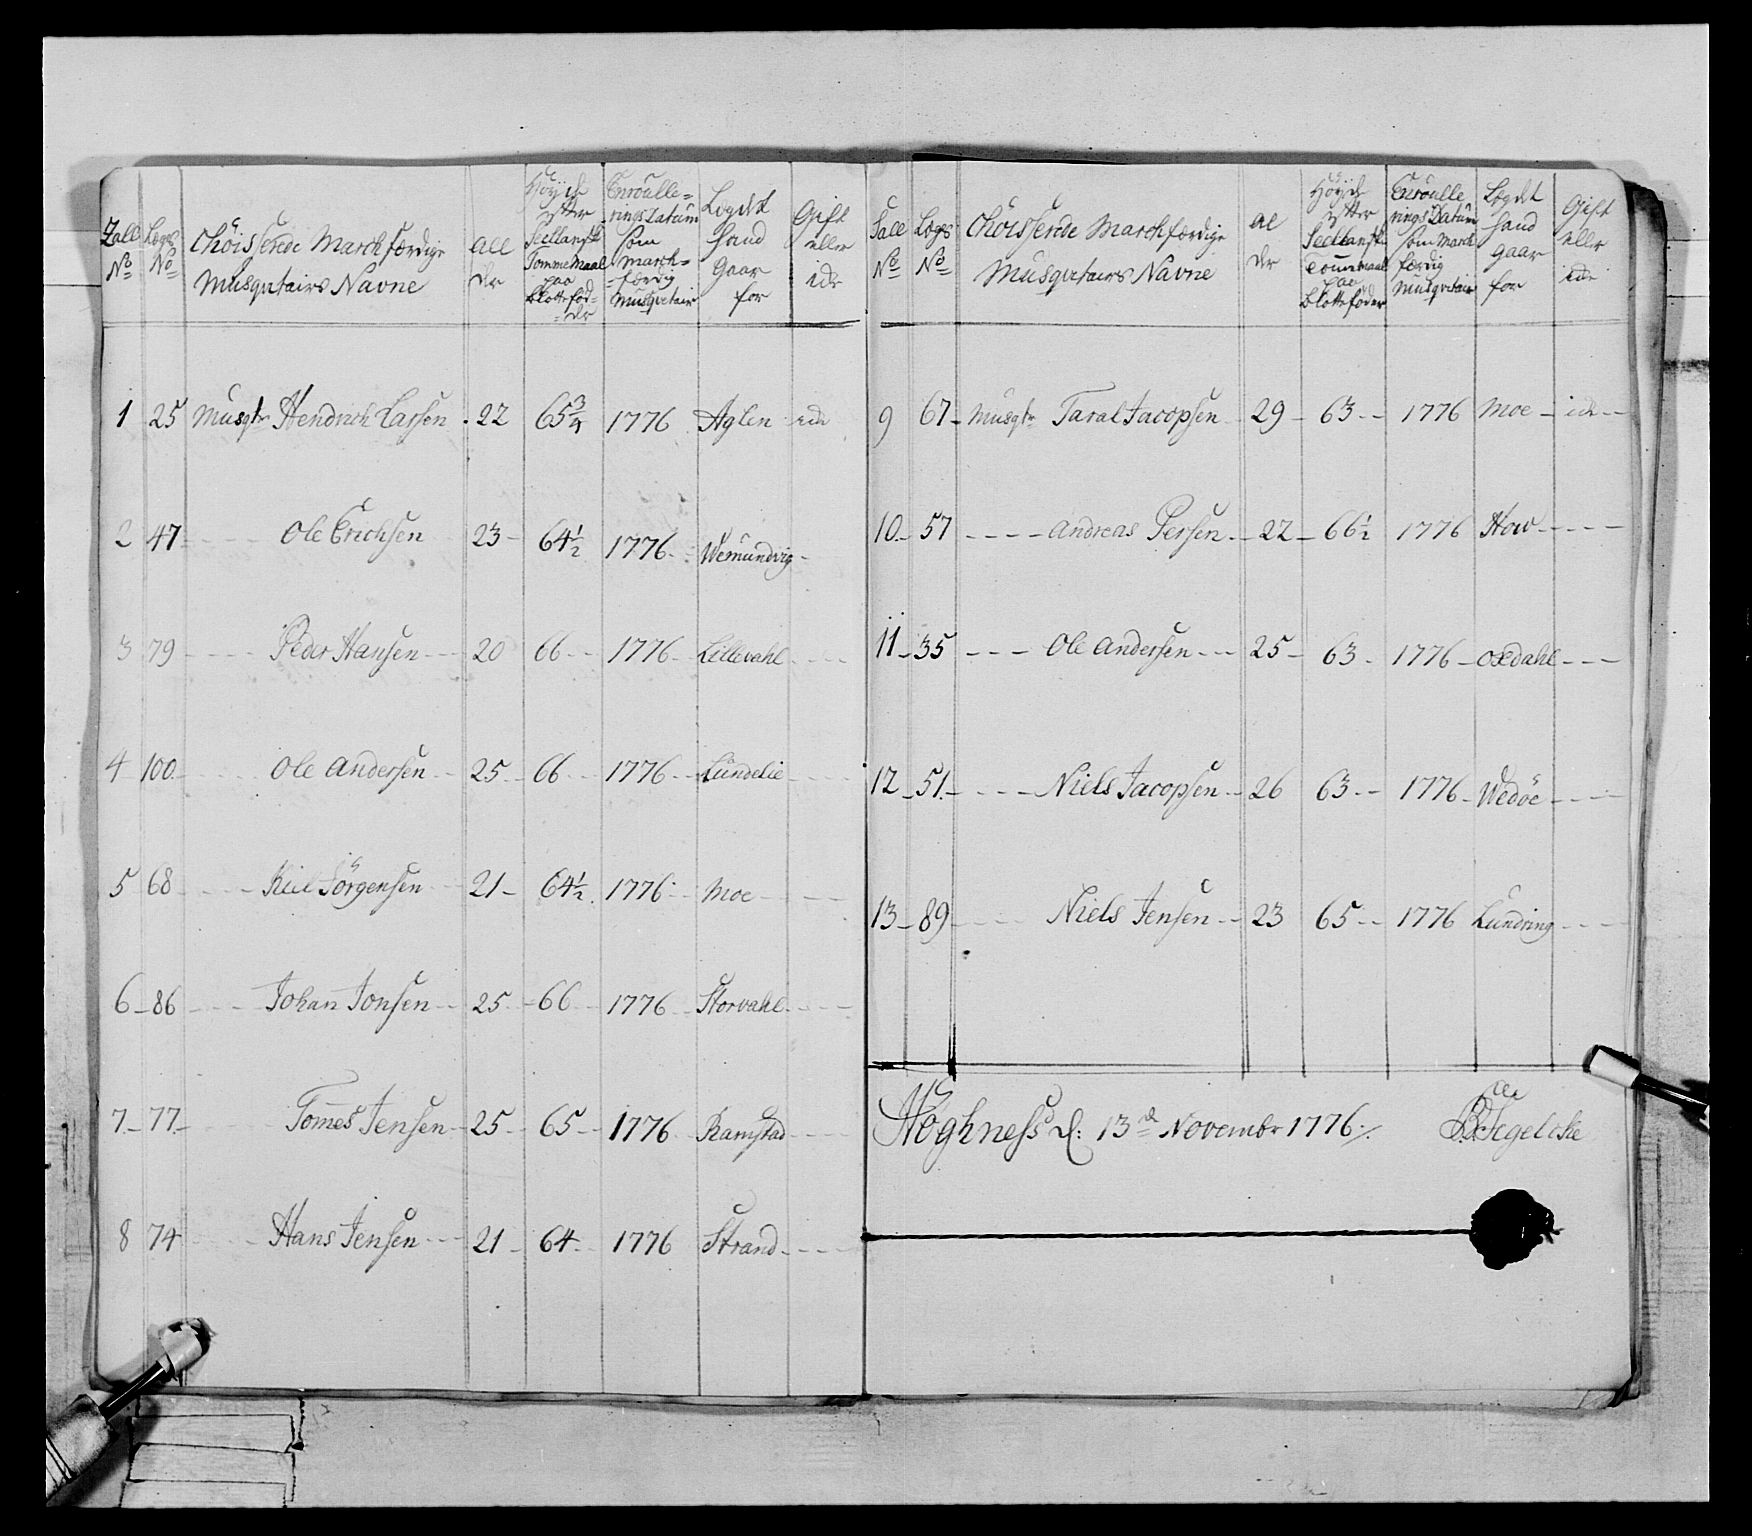 Tall No Lægs No Choisserde Marchfærdige Musqvetairs Navne all der Høyde efter Siellansk Tomme Maal paa blotte fød=der Enroulle=rings Datum som March=færdig Musqvetair Legdet hand Gaar for Gift eller ide
1 25 Musqtr Hendrich Larsen 22 65 3/4 1776 Aglen ide
2 47 Ole Erichsen 23 64 1/2 1776 Wemundvig
3 79 Peder Hansen 20 66 1776 Lillevahl
4 100 Ole Andersen 25 66 1776 Lundelie
5 68 Jörgensen 21 64 1/2 1776 Moe
6 86 Johan Jonsen 25 66 1776 Storvahl
7 77 Tom̄es Jensen 25 65 1776 Ramstad
8 74 Hans Jensen 21 64 1776 Strand
Tall No Lægs No Choisserde Marchfærdige Musqvetairs Navne al der Höyde Siellansk Tomme maal paa blotte föder Enroulle rings Datum som March færdig Musqvetair Legdet hand gaar for Gift eller ide
9 67 Musqtr Taral Jacopsen 29 63 1776 Moe ide
10 57 Andreas Persen 22 66 1/2 1776 How
11 35 Ole Andersen 25 63 1776 Oxdahl
12 51 Niels Jacopsen 26 63 1776 Wedöe
13 89 Niels Jensen 23 65 1776 Lundring
Höghness d: 13de Novembr 1776